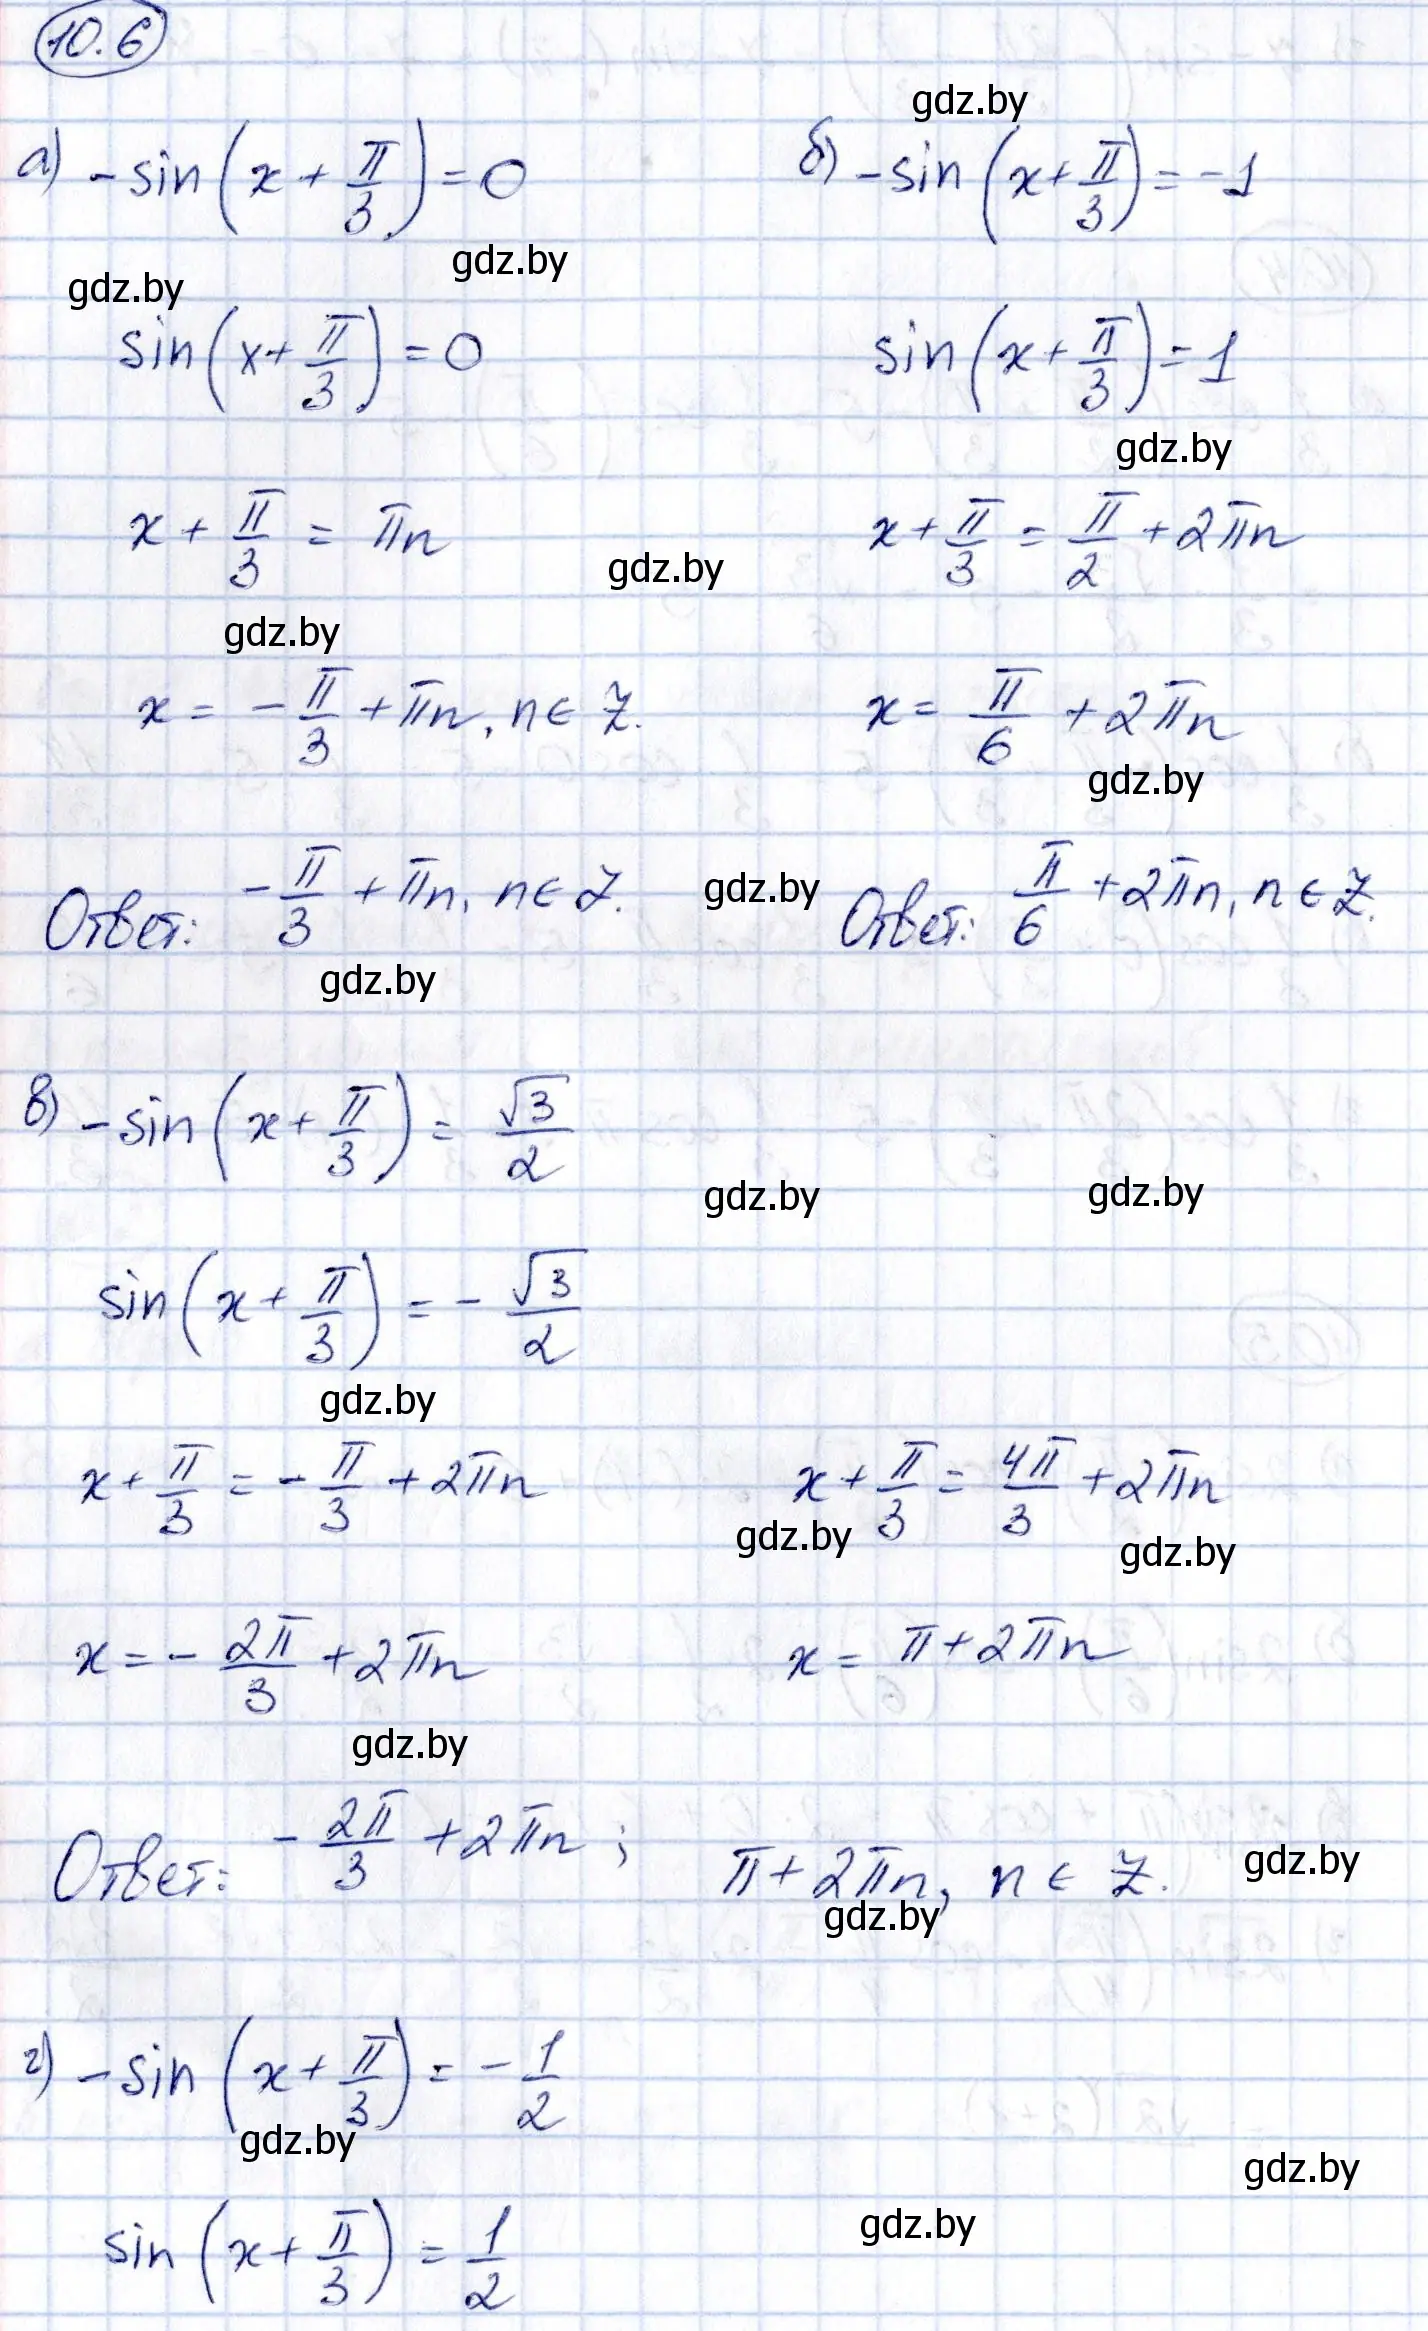 10.6
а) -sin(x + π/3) = 0
б) -sin(x + π/3) = -1
gdz.by
gdz.by
gdz.by
sin(x + π/3) = 0
sin(x + π/3) = 1
gdz.by
x + π/3 = πn
x + π/3 = π/2 + 2πn
gdz.by
gdz.by
x = - π/3 + πn, n ∈ Z.
x = π/6 + 2πn
gdz.by
Ответ: - π/3 + πn, n ∈ Z.
gdz.by
Ответ: π/6 + 2πn, n ∈ Z.
gdz.by
в) -sin(x + π/3) = √3/2
gdz.by
gdz.by
sin(x + π/3) = - √3/2
gdz.by
x + π/3 = - π/3 + 2πn
x + π/3 = 4π/3 + 2πn
gdz.by
gdz.by
x = - 2π/3 + 2πn
x = π + 2πn
gdz.by
Ответ: - 2π/3 + 2πn ; π + 2πn, n ∈ Z.
gdz.by
gdz.by
г) -sin(x + π/3) = - 1/2
gdz.by
gdz.by
sin(x + π/3) = 1/2
gdz.by